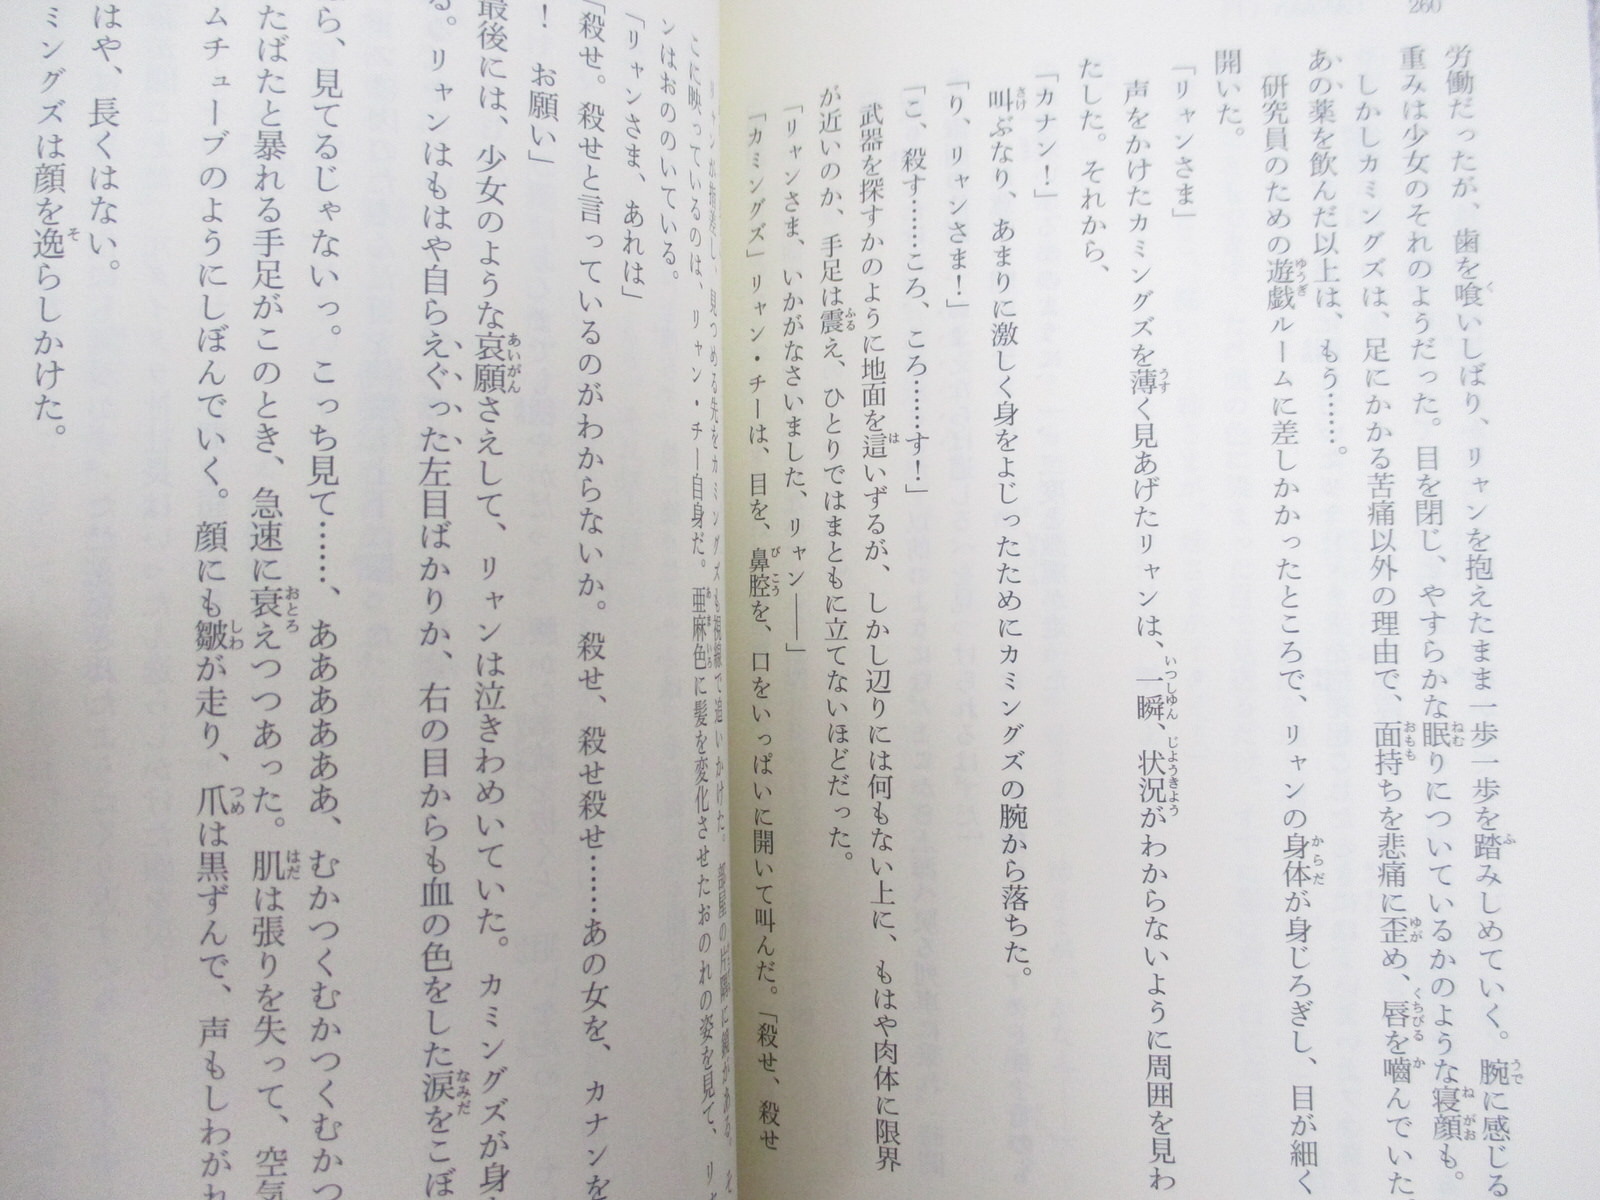 260
労働だったが、歯を喰いしばり、リャンを抱えたまま一歩一歩を踏みしめていく。腕に感じる
重みは少女のそれのようだった。目を閉じ、やすらかな眠りについているかのような寝顔も。
しかしカミングズは、足にかかる苦痛以外の理由で、面持ちを悲痛に歪め、唇を嚙んでいた
あの薬を飲んだ以上は、もう……。
研究員のための遊戯ルームに差しかかったところで、リャンの身体が身じろぎし、目が細く
開いた。
「リャンさま」
声をかけたカミングズを薄く見あげたリャンは、一瞬、状況がわからないように周囲を見わ
たした。それから、
「カナン！」
叫ぶなり、あまりに激しく身をよじったためにカミングズの腕から落ちた。
「り、リャンさま！」
「こ、殺す……ころ、ころ……す！」
武器を探すかのように地面を這いずるが、しかし辺りには何もない上に、もはや肉体に限界
が近いのか、手足は震え、ひとりではまともに立てないほどだった。
「リャンさま、いかがなさいました、リャン――」
「カミングズ」リャン・チーは、目を、鼻腔を、口をいっぱいに開いて叫んだ。「殺せ、殺せ
見つめる先をカミングズも視線で追いかけた。部屋の片隅に鏡がある。そ
こに映っているのは、リャン・チー自身だ。亜麻色に髪を変化させたおのれの姿を見て、リャ
ンはおののいている。
「リャンさま、あれは」
「殺せ。殺せと言っているのがわからないか。殺せ、殺せ殺せ……あの女を、カナンを
！　お願い」
最後には、少女のような哀願さえして、リャンは泣きわめいていた。カミングズが身
る。リャンはもはや自らえぐった左目ばかりか、右の目からも血の色をした涙をこぼ
ら、見てるじゃないっ。こっち見て……、ああああああ、むかつくむかつくむかつ
たばたと暴れる手足がこのとき、急速に衰えつつあった。肌は張りを失って、空気
ムチューブのようにしぼんでいく。顔にも皺が走り、爪は黒ずんで、声もしわがれ
はや、長くはない。
ミングズは顔を逸らしかけた。